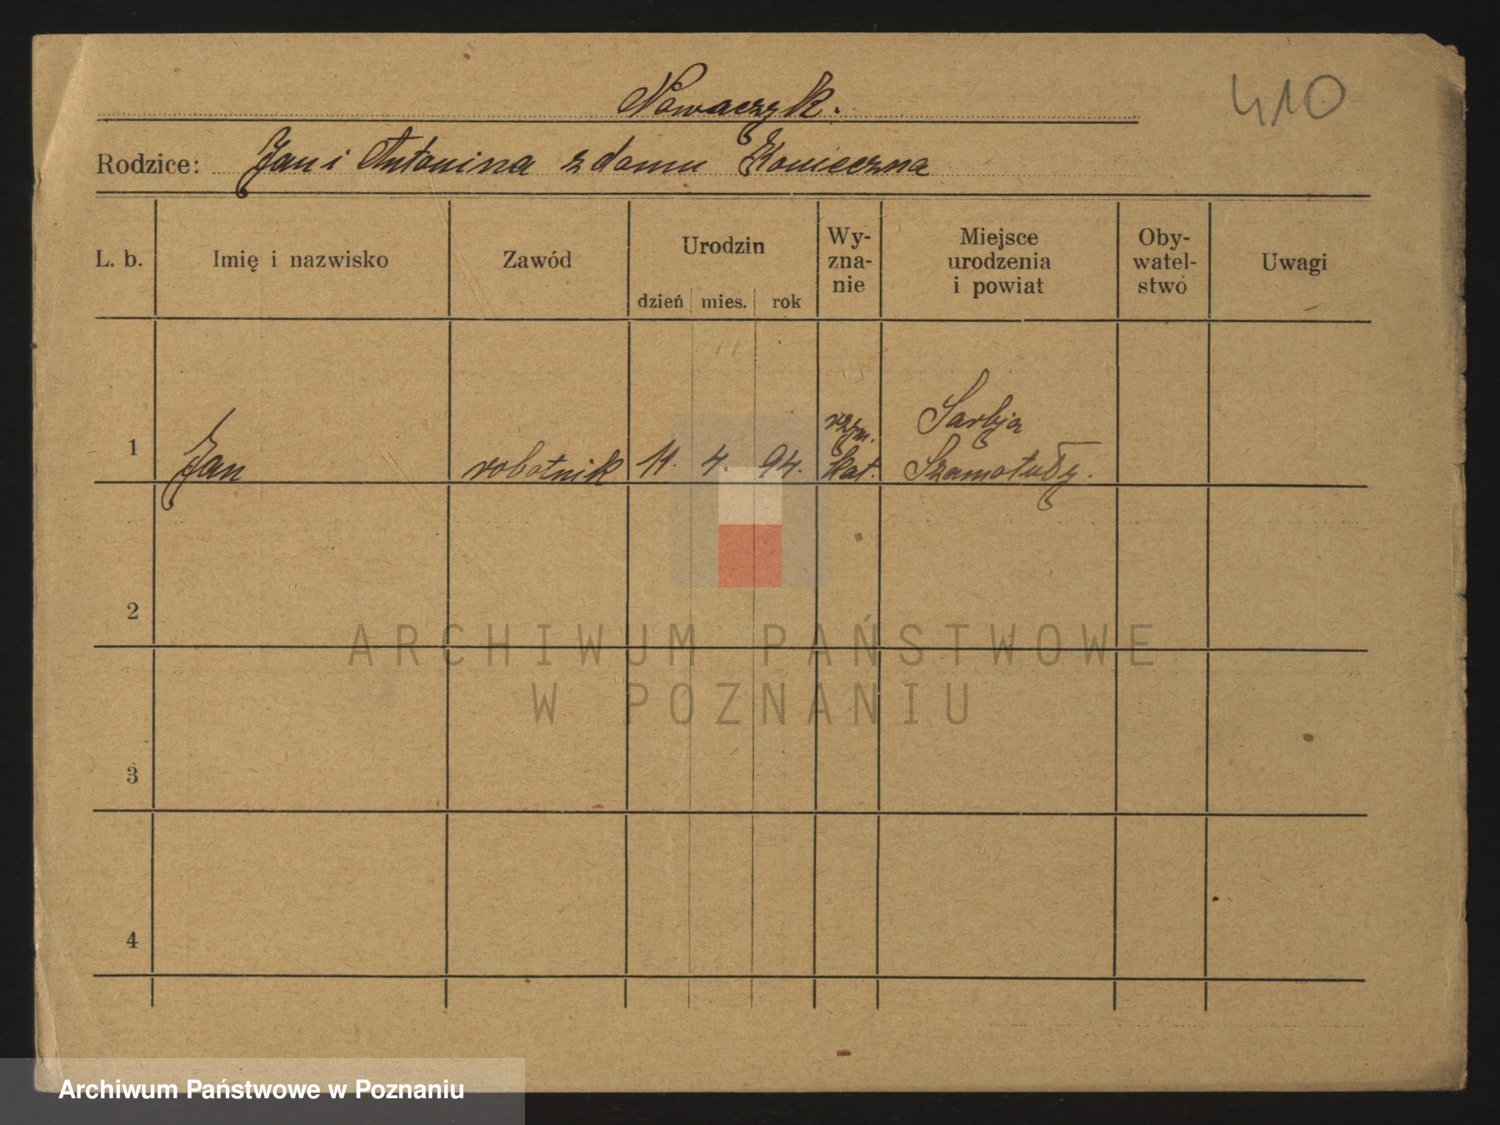 Nowaczyk.
410
Rodzice: Jan i Antonina z domu Konieczna
L. b. Imię i nazwisko Zawód Urodzin dzień mies. rok Wy-zna-nie Miejsce urodzenia i powiat Oby-watel-stwo Uwagi
rzym. Sarbja
1 Jan robotnik 11. 4. 94. kat. Szamotuły.
2
ARCHIWUM PAŃSTWOWE
W POZNANIU
3
4
Archiwum Państwowe w Poznaniu